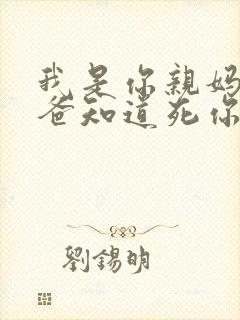 我是你親媽
爸知道死你
劉錫明